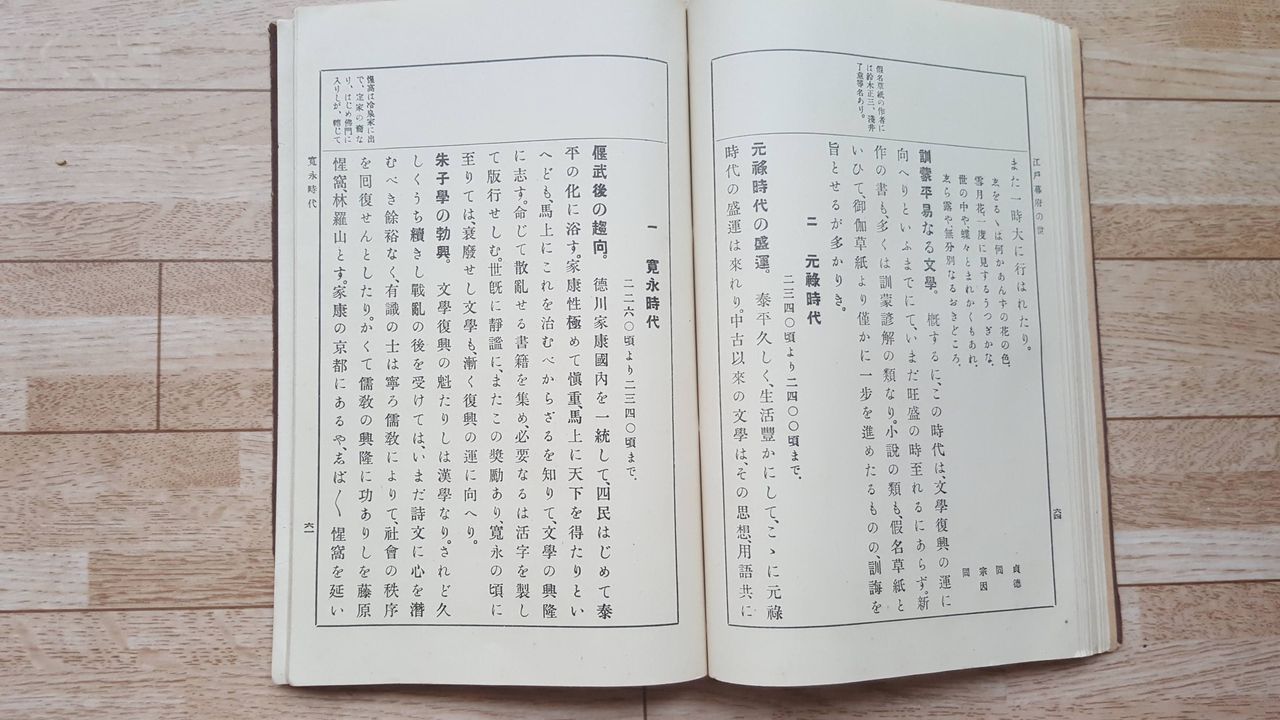 江戸幕府の世
六四
また一時大に行はれたり。
ゑをるゝは何かあんずの花の色、 貞德
雪月花一度に見するうつぎかな、 同
世の中や蝶々とまれかくもあれ、 宗因
ゑら露や無分別なるおきどころ、 同
訓蒙平易なる文學。 概するに、この時代は、文學復興の運に
向へりといふまでにて、いまだ旺盛の時至れるにあらず。新
作の書も、多くは訓蒙諺解の類なり。小說の類も、假名草紙と
いひて、御伽草紙より僅かに一步を進めたるものの、訓誨を
旨とせるが多かりき。
假名草紙の作者に
は鈴木正三、淺井
了意等名あり。
二 元祿時代
二三四〇頃より二四〇〇頃まで、
元祿時代の盛運。 泰平久しく、生活豐かにして、こゝに元祿
時代の盛運は來れり。中古以來の文學は、その思想、用語共に
一 寛永時代
二二六〇頃より二三四〇頃まで、
偃武後の趨向。 德川家康國內を一統して、四民はじめて泰
平の化に浴す。家康性極めて愼重、馬上に天下を得たりとい
へども、馬上にこれを治むべからざるを知りて、文學の興隆
に志す。命じて散亂せる書籍を集め、必要なるは活字を製し
て版行せしむ。世旣に靜謐に、またこの奬勵あり、寛永の頃に
至りては、衰廢せし文學も、漸く復興の運に向へり。
朱子學の勃興。 文學復興の魁たりしは漢學なり。されど久
しくうち續きし戰亂の後を受けては、いまだ詩文に心を潛
むべき餘裕なく、有識の士は寧ろ儒敎によりて、社會の秩序
を囘復せんとしたり。かくて儒敎の興隆に功ありしを藤原
惺窩、林羅山とす。家康の京都にあるや、ゑば〱惺窩を延い
惺窩は冷泉家に出
で、定家の裔な
り、はじめ佛門に
入りしが、轉じて
寛永時代
六一